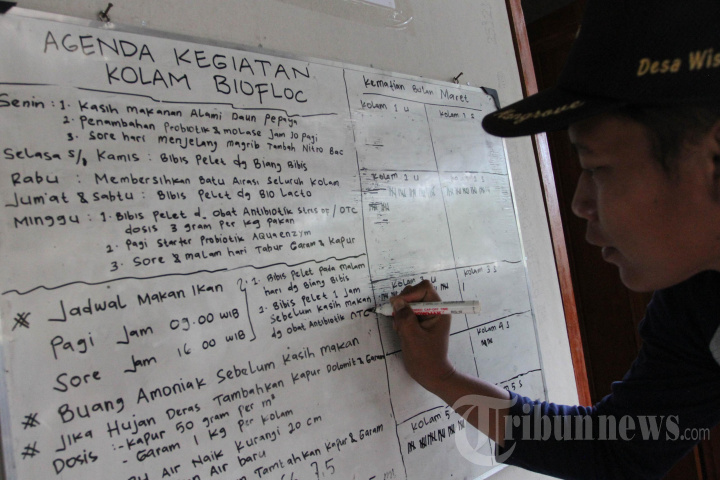 AGENDA KEGIATAN
KOLAM BIOFLOC
Senin : 1. Kasih makanan Alami Daun Pepaya
2. Penambahan Probiotik & molase Jam 10 pagi
3. Sore hari menjelang magrib Tambah Nitro Bac
Selasa s/d Kamis : Bibis Pelet dg Biang Bibis
Rabu : Membersihkan Batu Airasi Seluruh Kolam
Jum'at & Sabtu : Bibis Pelet dg BIO Lacto
Minggu : 1. Bibis Pelet d. obat Antibiotik / OTC
dosis 3 gram per kg pakan
2. Pagi Starter Probiotik AQUAenzym
3. Sore & malam hari Tabur Garam & Kapur
* Jadwal Makan Ikan
Pagi Jam 09.00 WIB
Sore Jam 16 00 WIB
1. Bibis Pelet pada malam
hari dg Biang Bibis
2. Bibis Pelet 1 Jam
sebelum kasih makan
dg obat Antibiotik OTC
* Buang Amoniak Sebelum Kasih makan
* Jika Hujan Deras Tambahkan Kapur Dolomit & Garam
Dosis : - Kapur 50 gram per m³
- Garam 1 Kg per Kolam
Air Naik Kurangi 20 cm
Air baru
Tambahkan Kapur & Garam
7.5
Kematian Bulan Maret
Kolam 1 U
Kolam 1 S
Kolam
Kolam
Kolam 3 U
3 S
Kolam 4 S
5 S
Kolam 5
Desa Wis
Tribunnews.com